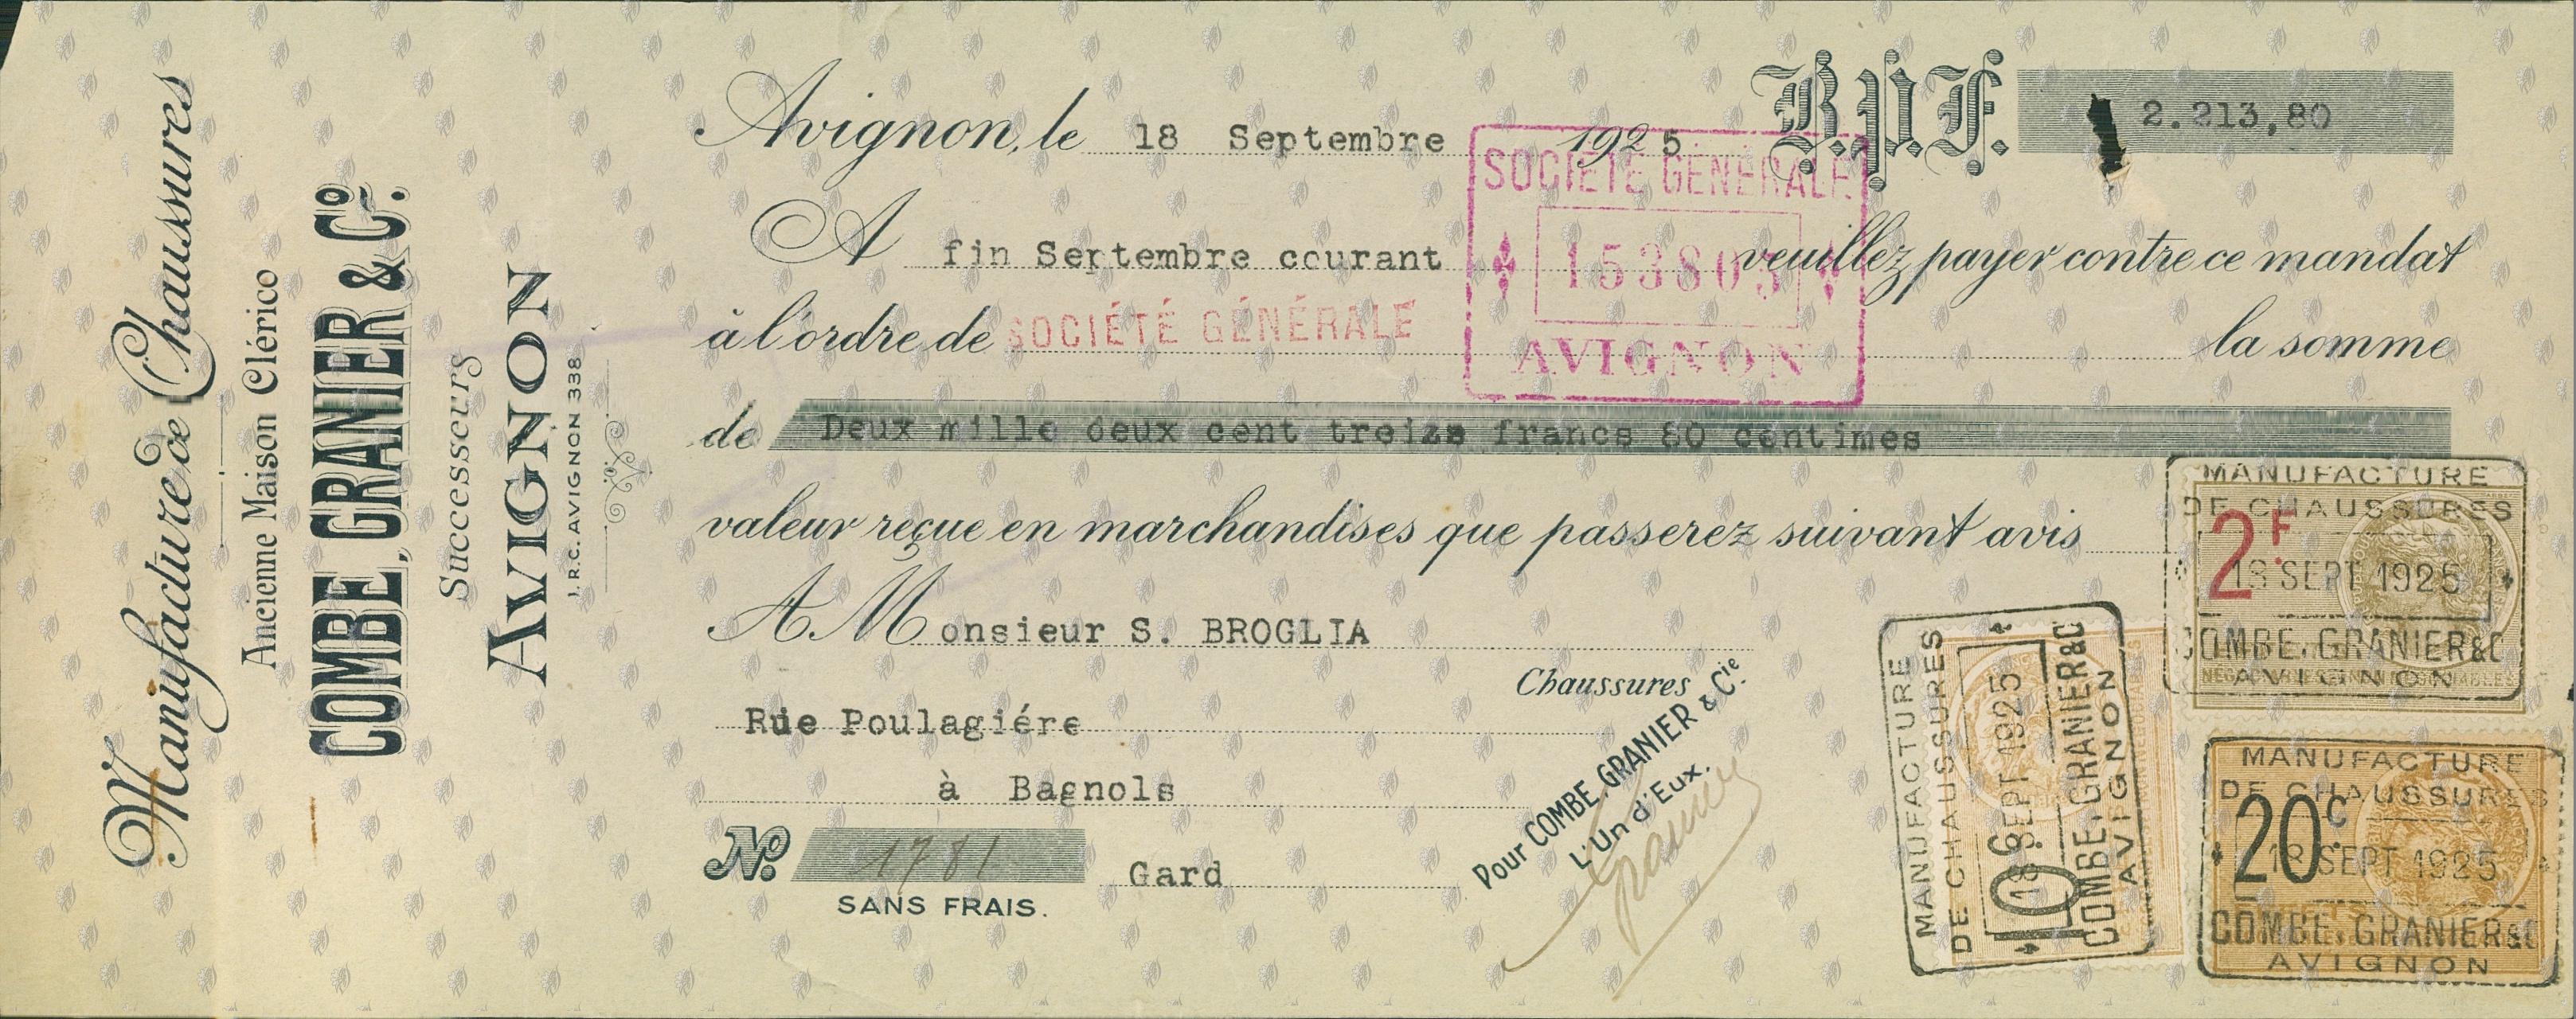 Manufacture de Chaussures
Ancienne Maison Clérico
COMBE, GRANIER & Cº.
Successeurs
AVIGNON
J.R.C. AVIGNON 338
Avignon, le 18 Septembre 1925
B.P.F. 2.213,80
SOCIÉTÉ GÉNÉRALE
153803
AVIGNON
A fin Septembre courant veuillez payer contre ce mandat
à l'ordre de SOCIÉTÉ GÉNÉRALE la somme
de Deux mille deux cent treize francs 80 centimes
valeur reçue en marchandises que passerez suivant avis
A Monsieur S. BROGLIA
Chaussures
Rue Poulagiére
à Bagnols
Nº. 1781 Gard
SANS FRAIS.
Pour COMBE, GRANIER & Cie.
L'Un d'Eux.
Granier
MANUFACTURE
DE CHAUSSURES
2F
18 SEPT 1925
COMBE, GRANIER&C
AVIGNON
MANUFACTURE
DE CHAUSSURES
10c
18 SEPT 1925
COMBE, GRANIER&C
AVIGNON
MANUFACTURE
DE CHAUSSURES
20c
18 SEPT 1925
COMBE, GRANIER&C
AVIGNON